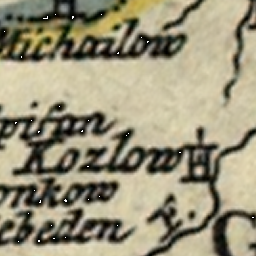 Michailow
pifan
Kozlow
onkow
ebeden
G